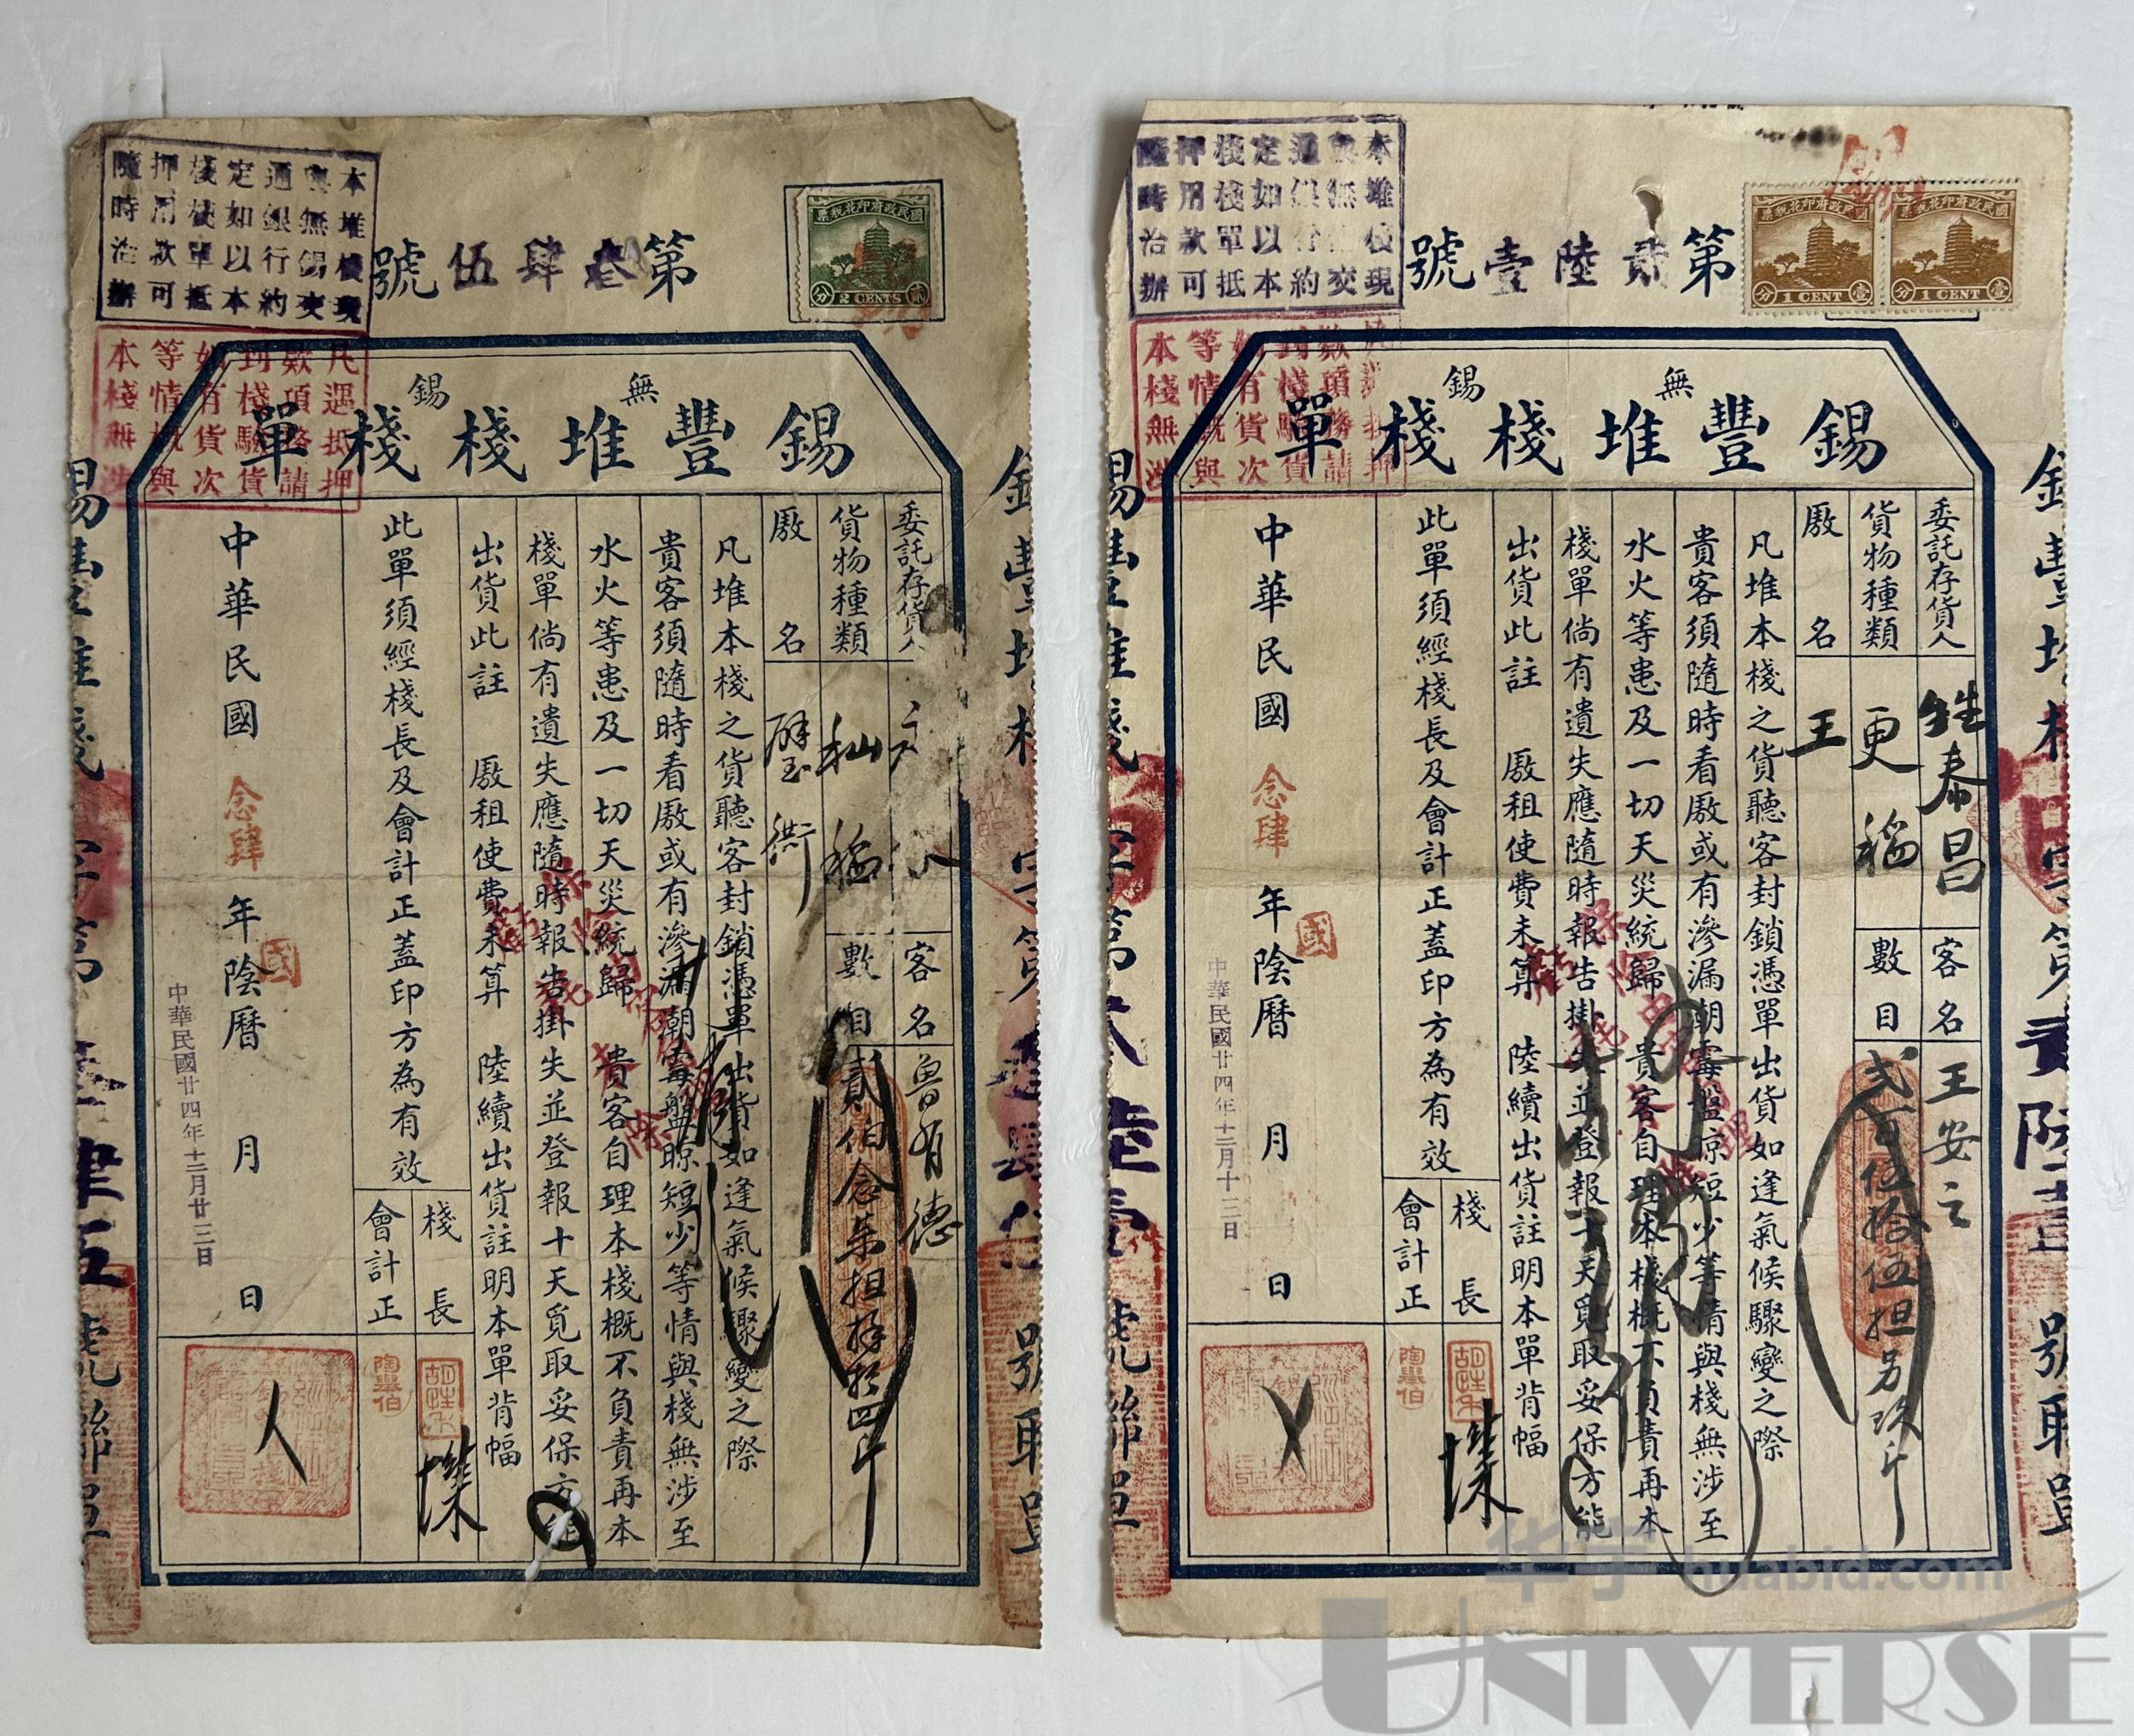 本堆棧現
與無錫交
通銀行約
定如以本
棧棧單抵
押用款可
隨時洽辦
第叁肆伍號
國民政府印花稅票
貳分
2 CENTS
凡遇抵押
款項務請
到棧驗貨
如有貨次
等情概與
本棧無涉
無錫
錫豐堆棧棧單
委託存貨人
客名 魯有德
貨物種類 秈稻
數目 貳伯念柒担
厫名
凡堆本棧之貨聽客封鎖憑單出貨如逢氣候驟變之際
貴客須隨時看厫或有滲漏潮霉盤晾短少等情與棧無涉至
水火等患及一切天災統歸 貴客自理本棧概不負責再本
棧單倘有遺失應隨時報告掛失並登報十天覓取妥保方能
出貨此註 厫租使費未算 陸續出貨註明本單背幅
此單須經棧長及會計正蓋印方為有效
棧長
會計正
陶羣伯
中華民國念肆年陰曆 月 日
國
中華民國廿四年十二月廿三日
本堆棧現
與無錫交
通銀行約
定如以本
棧棧單抵
押用款可
隨時洽辦
第貳陸壹號
國民政府印花稅票
壹分
1 CENT
國民政府印花稅票
壹分
1 CENT
凡遇抵押
款項務請
到棧驗貨
如有貨次
等情概與
本棧無涉
無錫
錫豐堆棧棧單
委託存貨人 甡泰昌
客名 王安之
貨物種類 更稻
數目 弍百伍拾伍担另玖斤
厫名 王
凡堆本棧之貨聽客封鎖憑單出貨如逢氣候驟變之際
貴客須隨時看厫或有滲漏潮霉盤晾短少等情與棧無涉至
水火等患及一切天災統歸 貴客自理本棧概不負責再本
棧單倘有遺失應隨時報告掛失並登報十天覓取妥保方能
出貨此註 厫租使費未算 陸續出貨註明本單背幅
此單須經棧長及會計正蓋印方為有效
棧長
會計正
陶羣伯
中華民國念肆年陰曆 月 日
國
中華民國廿四年十二月十二日
华宇 huabid.com
UNIVERSE